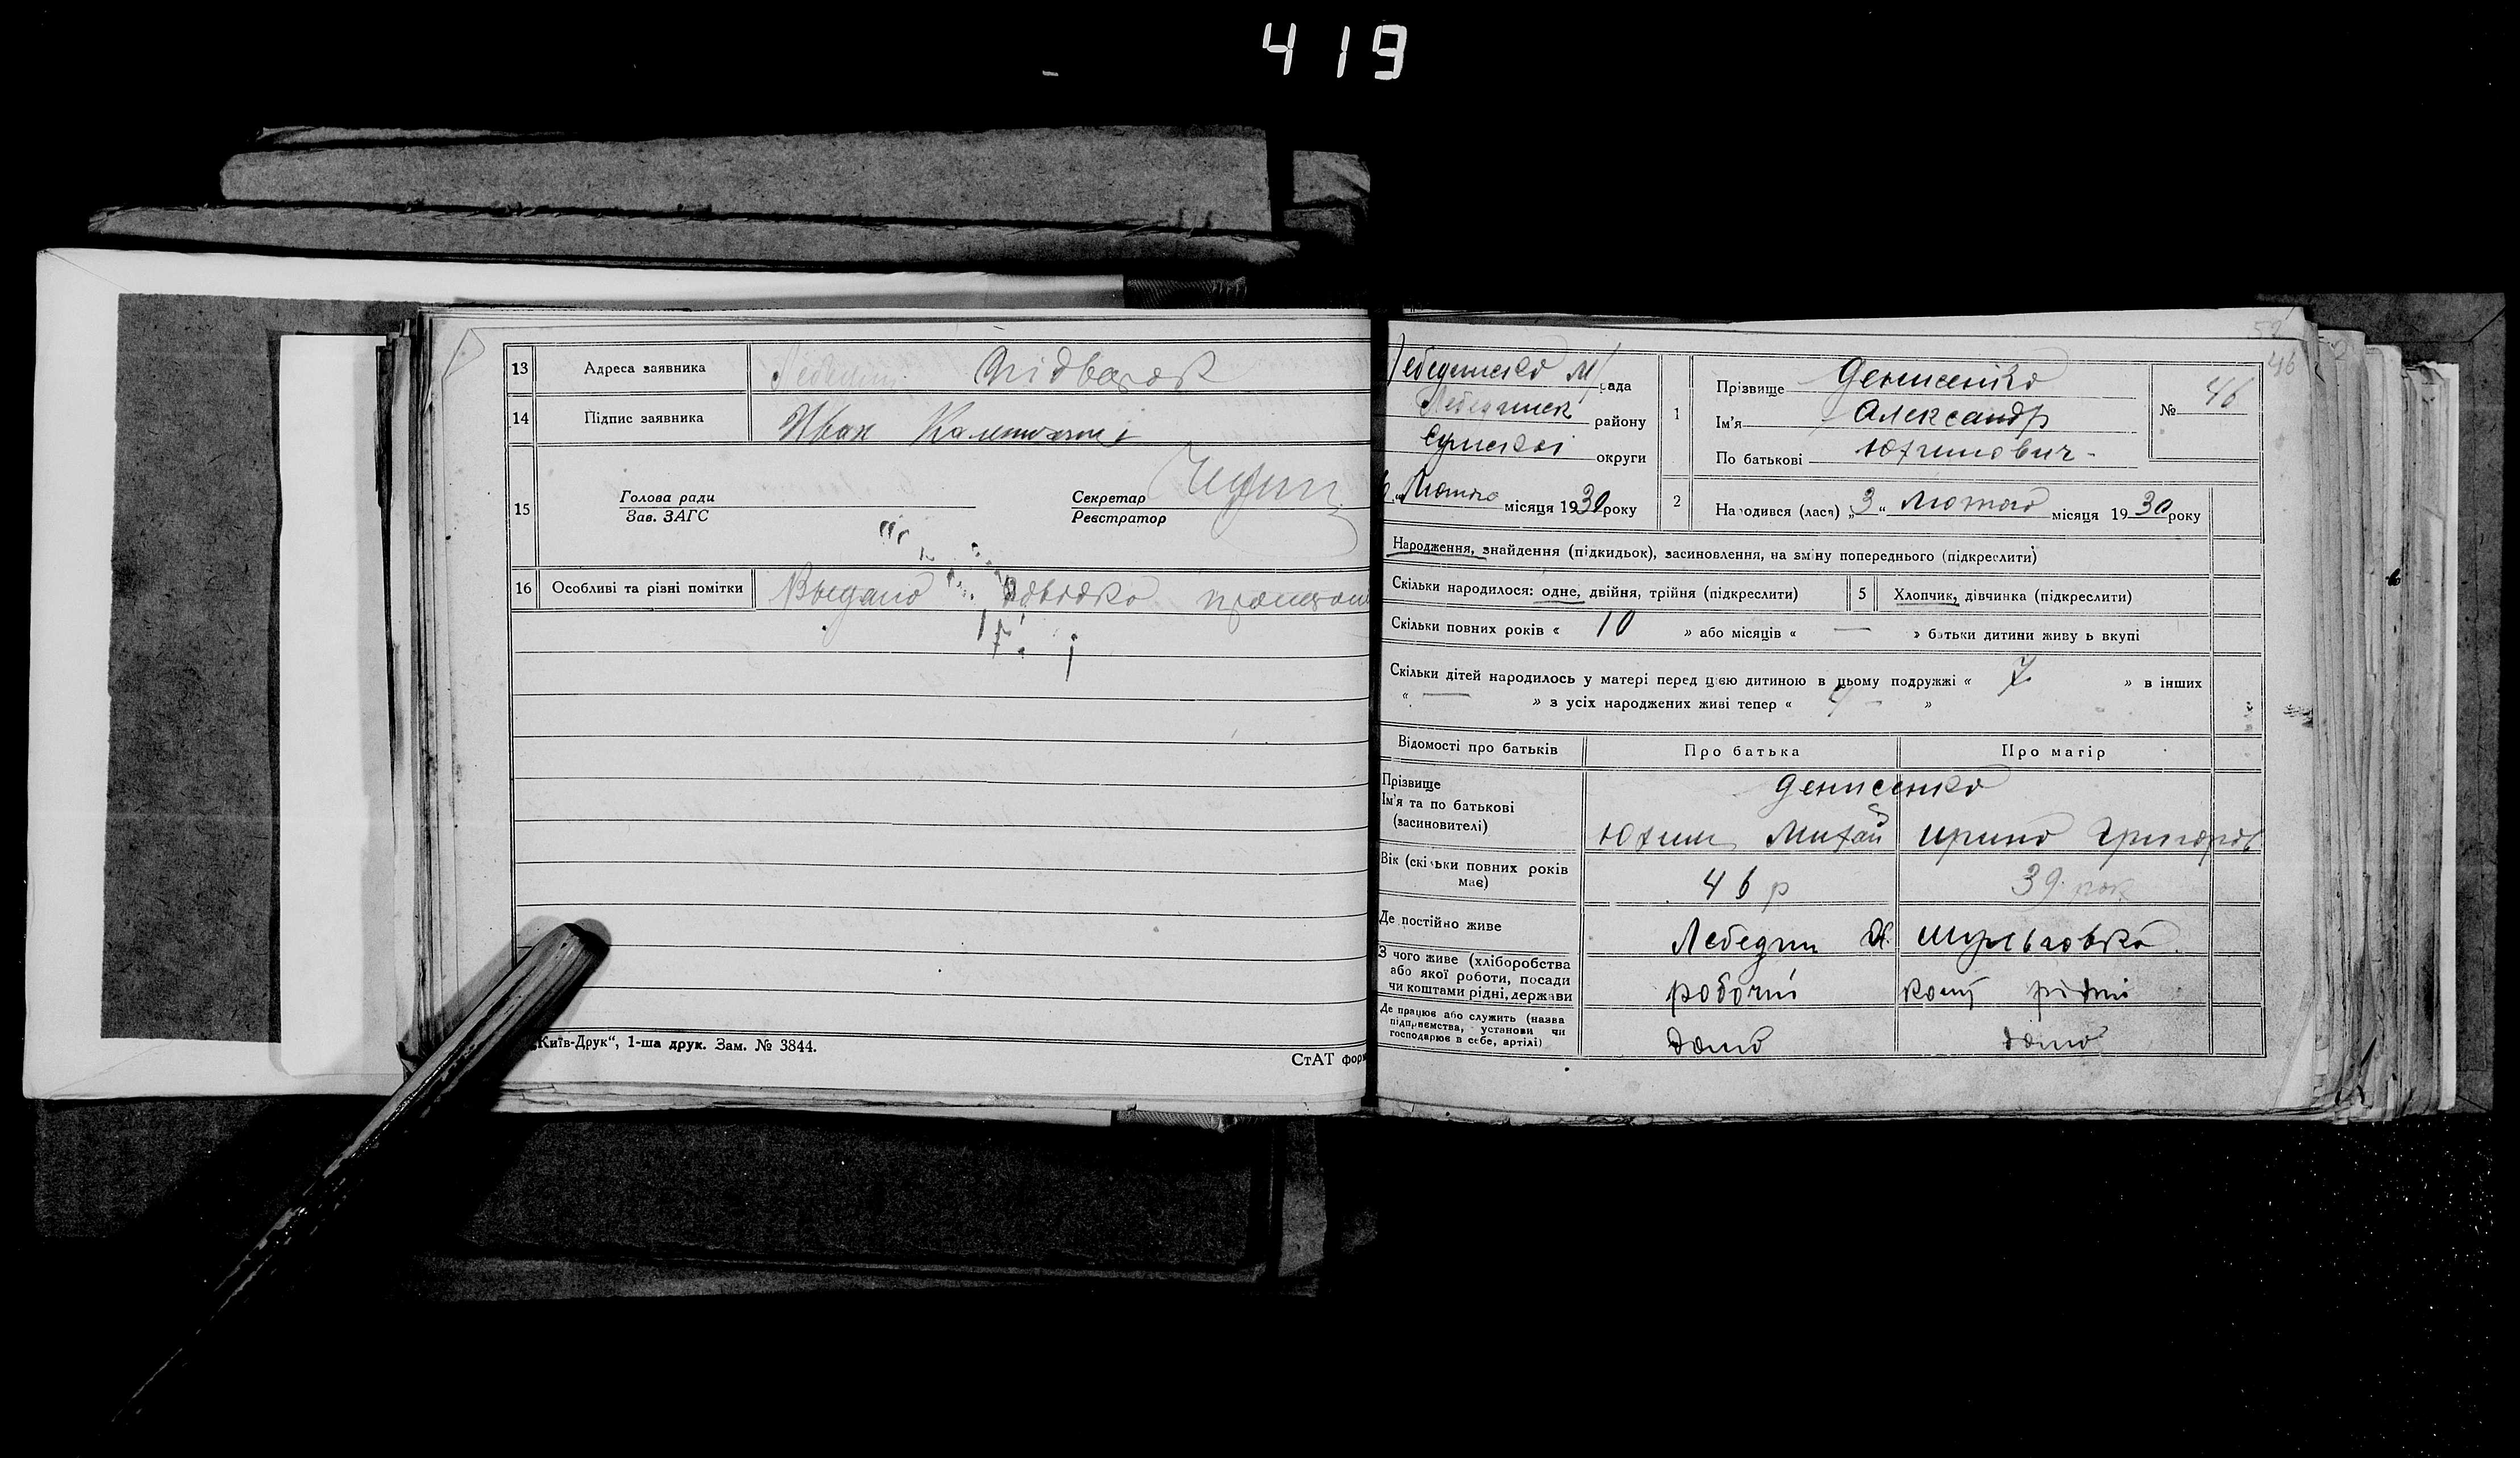 419
13 Адреса заявника Лебедин Підварок
14 Підпис заявника Иван
15 Голова ради
Зав. ЗАГС
Секретар
Реєстратор
16 Особливі та різні помітки Выдано довідка
„Київ-Друк“, 1-ша друк. Зам. № 3844.
СтАТ фор
46
Лебединсько М рада
Лебединск району
Сумскоі округи
Лютого місяця 1930 року
1 Прізвище Денисенко
Ім'я Александр
По батькові Юхимович -
№ 46
2 Народився (лась) „3“ Лютого місяця 1930 року
Народження, знайдення (підкидьок), засиновлення, на зміну попереднього (підкреслити)
Скільки народилося: одне, двійня, трійня (підкреслити) 5 Хлопчик, дівчинка (підкреслити)
Скільки повних років « 10 » або місяців « — » батьки дитини живуть вкупі
Скільки дітей народилось у матері перед цією дитиною в цьому подружжі « 7 » в інших
« — » з усіх народжених живі тепер « 4 - »
Відомості про батьків Про батька Про матір
Прізвище Денисенко
Ім'я та по батькові
(засиновителі) Юхим Михай Ирина Григоров
Вік (скільки повних років має) 46 р 39 рок
Де постійно живе Лебедин
З чого живе (хліборобства або якої роботи, посади чи коштами рідні, держави робочий рідні
Де працює або служить (назва підприємства, установи чи господарює в себе, артілі) дома дома